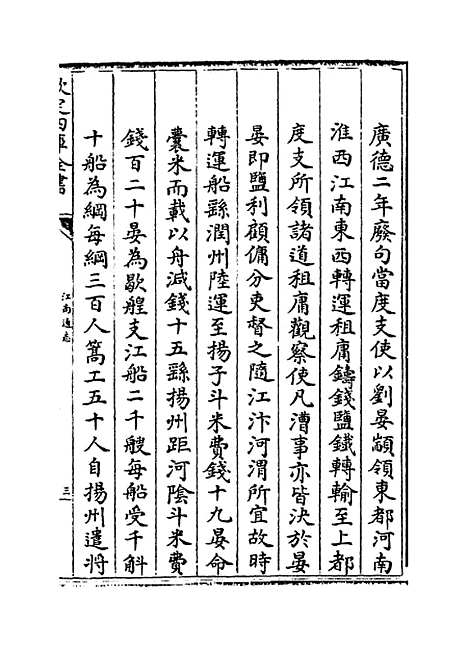 廣德二年廢句當度支使以劉晏顓領東都河南
淮西江南東西轉運租庸鑄錢鹽鐵轉輸至上都
度支所領諸道租庸觀察使凡漕事亦皆決於晏
晏即鹽利顧傭分吏督之隨江汴河渭所宜故時
轉運船繇潤州陸運至揚子斗米費錢十九晏命
囊米而載以舟減錢十五繇揚州距河陰斗米費
錢百二十晏為歇艎支江船二千艘每船受千斛
十船為綱每綱三百人篙工五十人自揚州遣將
欽定四庫全書
江南通志
三